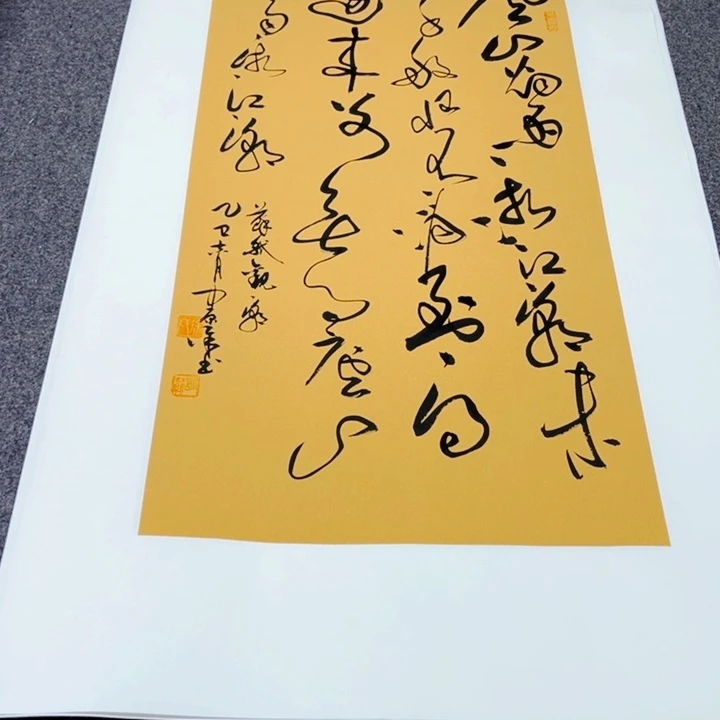 庐山烟雨浙江潮未
千般恨不消到得
还来别无事庐山
雨浙江潮
苏轼观潮
乙巳六月